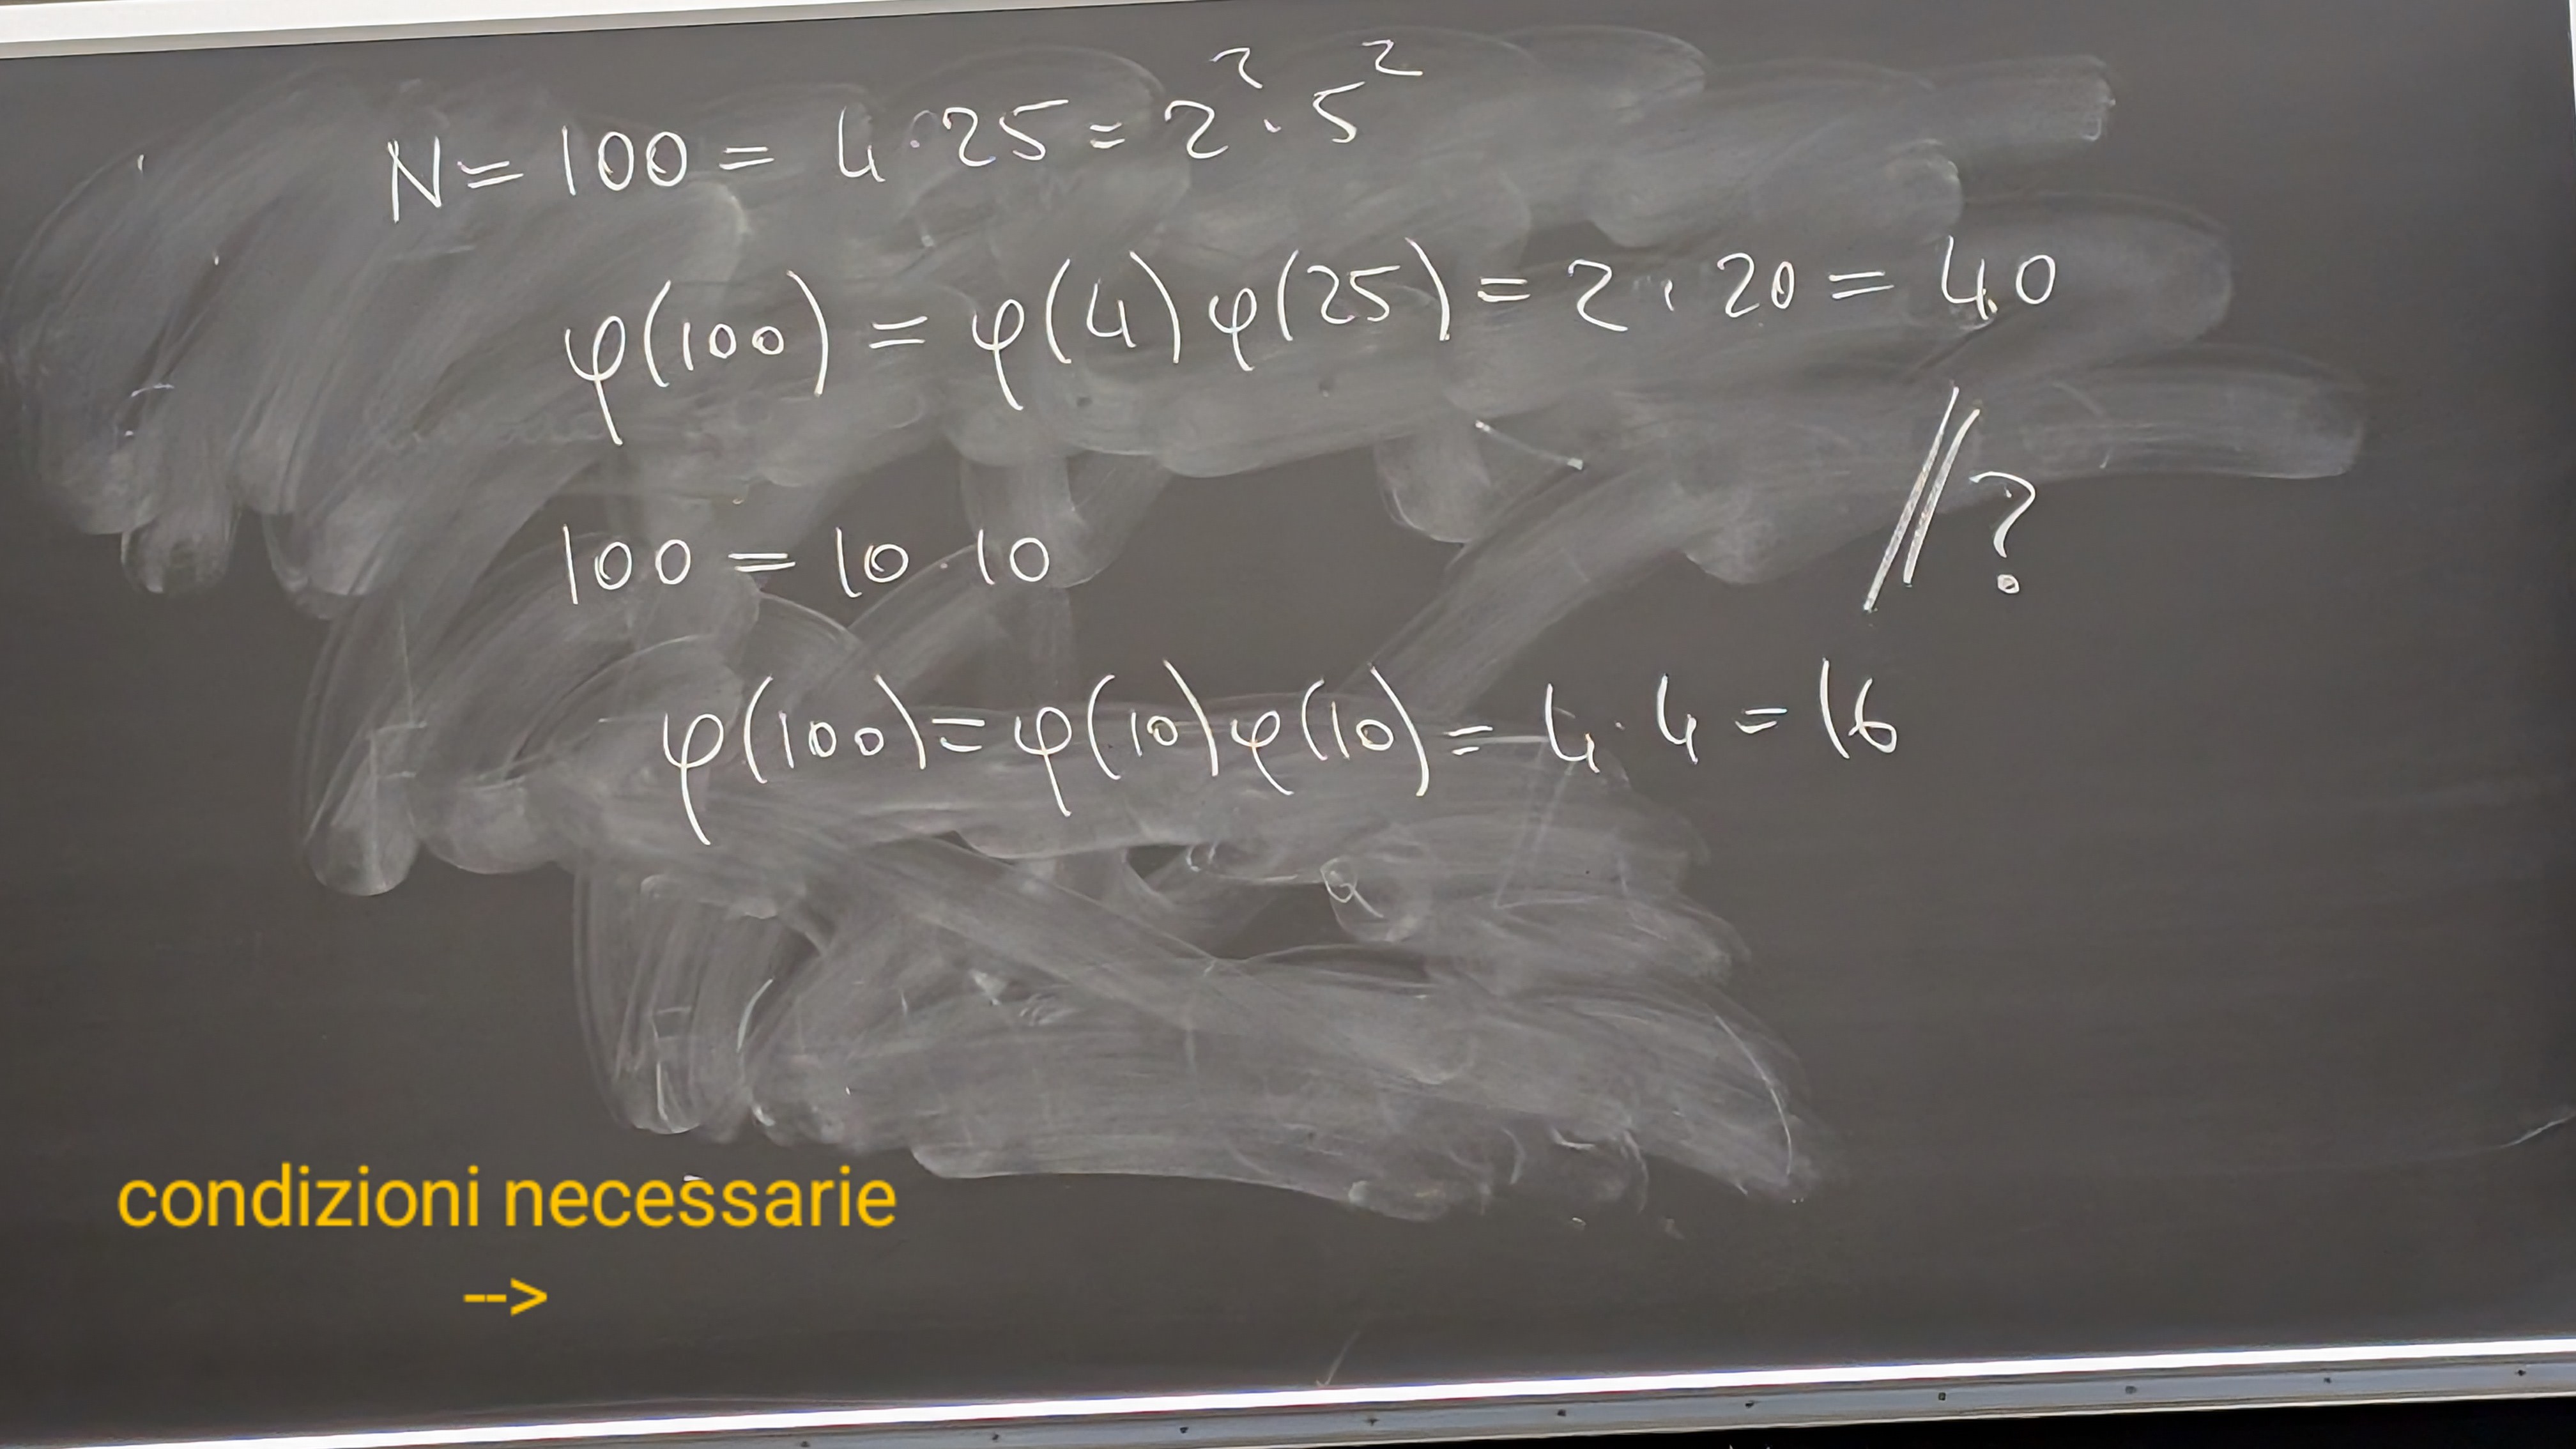 N = 100 = 4 · 25 = 2² · 5²
φ(100) = φ(4) φ(25) = 2 · 20 = 40
// ?
100 = 10 · 10
φ(100) = φ(10) φ(10) = 4 · 4 = 16
condizioni necessarie
-->